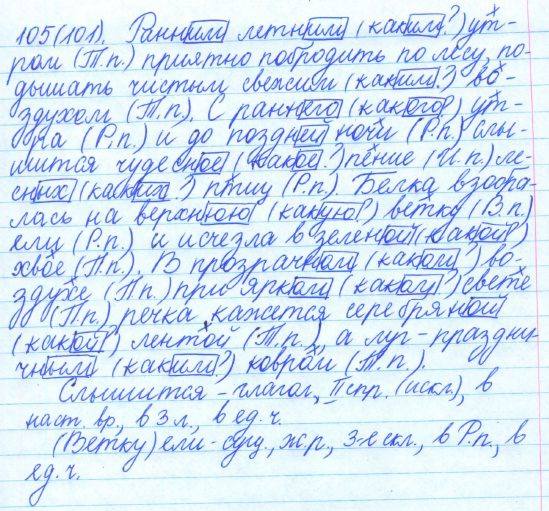 105(101). Ранним летним (каким?) ут-
ром (Т.п.) приятно побродить по лесу, по-
дышать чистым свежим (каким?) во-
здухом (Т.п.). С раннего (какого?) ут-
ра (Р.п.) и до поздней ночи (Р.п.) слы-
шится чудесное (какое?) пение (И.п.) ле-
сных (каких?) птиц (Р.п.). Белка взобра-
лась на верхнюю (какую?) ветку (В.п.)
ели (Р.п.) и исчезла в зеленой (какой?)
хвое (П.п.). В прозрачном (каком?) во-
здухе (П.п.) при ярком (каком?) свете
(П.п.) речка кажется серебряной
(какой?) лентой (Т.п.), а луг - праздни-
чным (каким?) ковром (Т.п.).
Слышится - глагол, II спр. (искл.), в
наст. вр., в 3 л., в ед. ч.
(Ветку) ели - сущ., ж.р., 3-е скл., в Р.п., в
ед. ч.